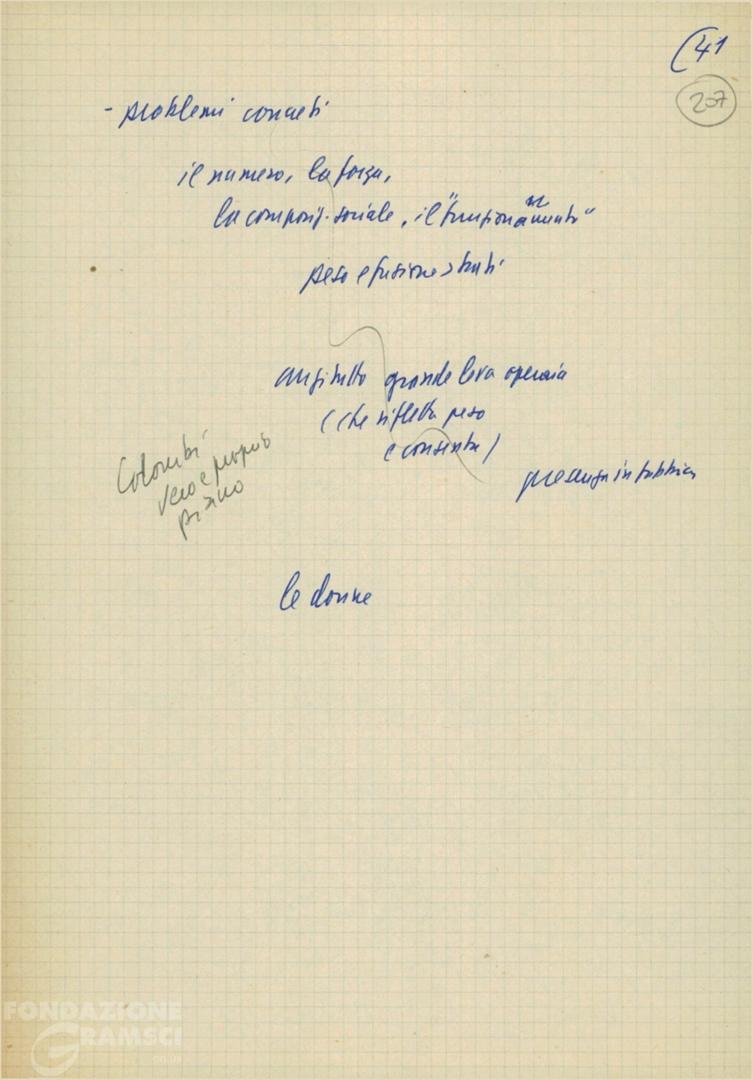 (41
207
- problemi concreti
il numero, la forza,
la composiz. sociale, il "funzionamento"
peso e fusione strati
anzitutto grande leva operaia
(che rifletta peso
e consenta)
presenza in fabbrica
Colombi
vero e proprio
piano
le donne
FONDAZIONE
GRAMSCI